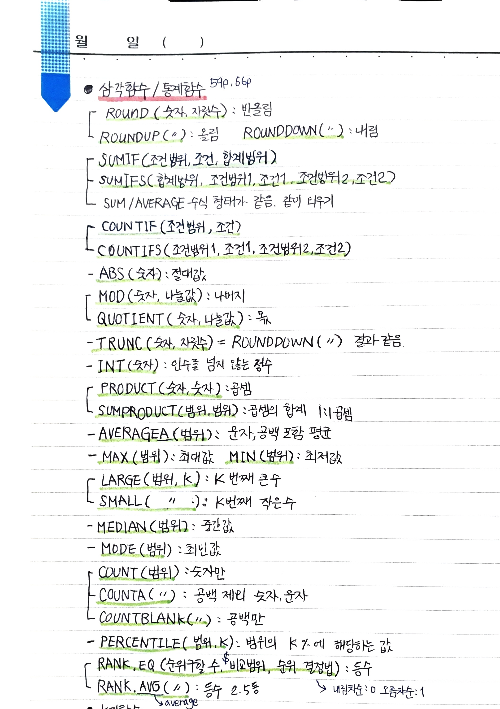 월 일 ( )
• 삼각함수/통계함수 59p, 66p
ROUND(숫자, 자릿수): 반올림
ROUNDUP(〃): 올림 ROUNDDOWN(〃): 내림
SUMIF(조건범위, 조건, 합계범위)
SUMIFS(합계범위, 조건범위1, 조건1, 조건범위2, 조건2)
SUM/AVERAGE 수식 형태가 같음. 같이 외우기
COUNTIF(조건범위, 조건)
COUNTIFS(조건범위1, 조건1, 조건범위2, 조건2)
- ABS(숫자): 절대값
MOD(숫자, 나눌값): 나머지
QUOTIENT(숫자, 나눌값): 몫
- TRUNC(숫자, 자릿수) = ROUNDDOWN(〃) 결과 같음.
- INT(숫자): 인수를 넘지 않는 정수
PRODUCT(숫자, 숫자): 곱셈
SUMPRODUCT(범위, 범위): 곱셈의 합계 1:1곱셈
- AVERAGEA(범위): 문자, 공백 포함 평균
- MAX(범위): 최대값 MIN(범위): 최저값
LARGE(범위, K): K번째 큰수
SMALL( 〃 ): K번째 작은수
- MEDIAN(범위): 중간값
- MODE(범위): 최빈값
COUNT(범위): 숫자만
COUNTA(〃): 공백 제외 숫자, 문자
COUNTBLANK(〃): 공백만
- PERCENTILE(범위, K): 범위의 K%에 해당하는 값
RANK.EQ(순위구할 수, $비교범위, 순위 결정법): 등수
RANK.AVG(〃): 등수 2.5등 ↘ 내림차순: 0 오름차순: 1
↘ average